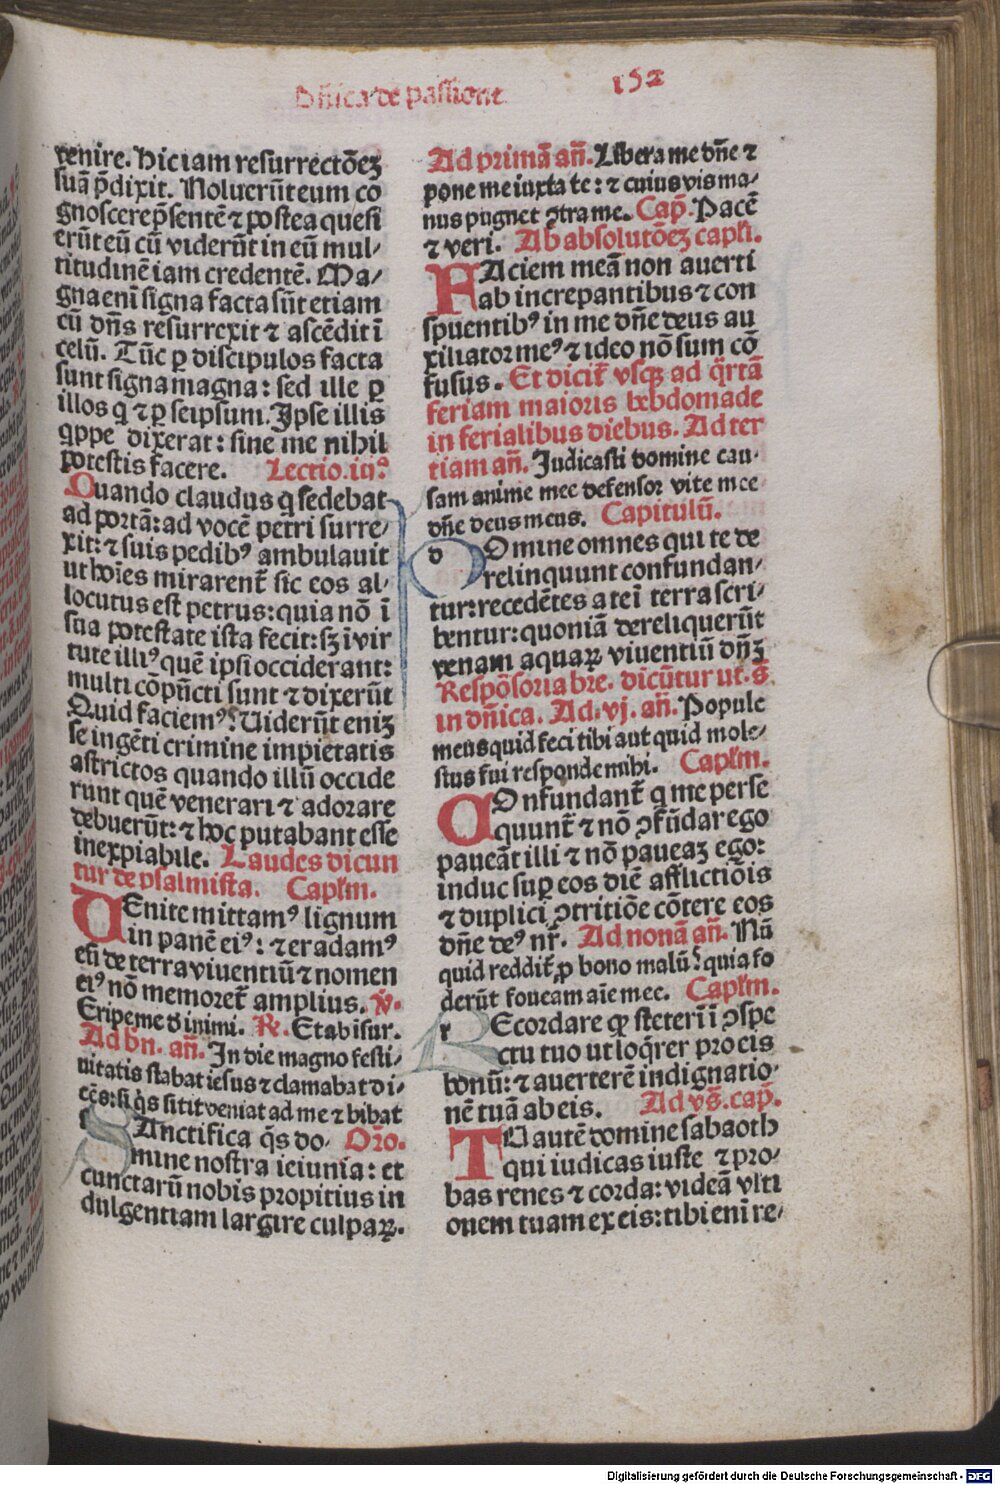 Dñica de passione 152
venire. Hic iam resurrectõeꝫ
suã p̃dixit. Noluerũt eum co
gnoscere p̃sentẽ ⁊ postea quesi
erũt eũ cũ viderũt in eũ mul⸗
titudinẽ iam credentẽ. Ma⸗
gna eni signa facta sũt etiam
cũ dñs resurrexit ⁊ ascẽdit ĩ
celũ. Tũc ꝑ discipulos facta
sunt signa magna: sed ille ꝑ
illos q̃ ⁊ ꝑ seipsum. Ipse illis
q̃ppe dixerat: sine me nihil
potestis facere. Lectio.iij.ᵃ
Quando claudus q̃ sedebat
ad portã: ad vocẽ petri surre⸗
xit: ⁊ suis pedibꝰ ambulauit
ut hoĩes mirarent̃ sic eos al⸗
locutus est petrus: quia nõ ĩ
sua potestate ista fecit: sꝫ ĩ vir
tute illiꝰ quẽ ipsi occiderant:
multi cõpũcti sunt ⁊ dixerũt
Quid faciemꝰ? Uiderũt eniꝫ
se ingẽti crimine impietatis
astrictos quando illũ occide
runt quẽ venerari ⁊ adorare
debuerũt: ⁊ hoc putabant esse
inexpiabile. Laudes dicun
tur de psalmista. Capl'm.
UEnite mittamꝰ lignum
in panẽ eiꝰ: ⁊ eradamꝰ
eũ de terra viuentiũ ⁊ nomen
eiꝰ nõ memoret̃ amplius. ℣.
Eripe me d inimi. ℟. Et ab isur.
Ad bñ. añ. In die magno festi⸗
uitatis stabat iesus ⁊ clamabat di⸗
cẽs: si q̃s sitit veniat ad me ⁊ bibat
SAnctifica q̃s do⸗ Orõ.
mine nostra ieiunia: et
cunctarũ nobis propitius in
dulgentiam largire culpaꝝ.
Ad primã añ. Libera me dñe ⁊
pone me iuxta te: ⁊ cuius vis ma⸗
nus pugnet ꝯtra me. Cap̃. Pacẽ
⁊ veri. Ab absolutõeꝫ capl'i.
FAciem meã non auerti
ab increpantibus ⁊ con
spuentibꝰ in me dñe deus au
xiliator meꝰ ⁊ ideo nõ sum cõ
fusus. Et dicit̃ vsqꝫ ad q̃rtã
feriam maioris hebdomade
in ferialibus diebus. Ad ter
tiam añ. Judicasti domine cau⸗
sam anime mee defensor vite mee
dñe deus meus. Capitulũ.
DOmine omnes qui te de
relinquunt confundan⸗
tur: recedẽtes a te ĩ terra scri⸗
bentur: quoniã dereliquerũt
venam aquaꝝ viuentiũ dñꝫ
Respõsoria bre. dicũtur ut. s̃.
in dñica. Ad .vj. añ. Popule
meus quid feci tibi aut quid mole⸗
stus fui responde mihi. Capl'm.
COnfundant̃ q̃ me perse
quunt̃ ⁊ nõ ꝯfũdar ego
paueãt illi ⁊ nõ paueaꝫ ego:
induc suꝑ eos diẽ afflictiõis
⁊ duplici ꝯtritiõe cõtere eos
dñe deꝰ nr̃. Ad nonã añ. Nũ
quid reddit̃ ꝓ bono malũ? quia fo
derũt foueam aĩe mee. Capl'm.
REcordare ꝙ steteri ĩ ꝯspe
ctu tuo ut loq̃rer pro eis
bonũ: ⁊ auerterẽ indignatio⸗
nẽ tuã ab eis. Ad vs̃. cap̃.
TU autẽ domine sabaoth
qui iudicas iuste ⁊ pro⸗
bas renes ⁊ corda: videã vlti
onem tuam ex eis: tibi eni re⸗
Digitalisierung gefördert durch die Deutsche Forschungsgemeinschaft - DFG